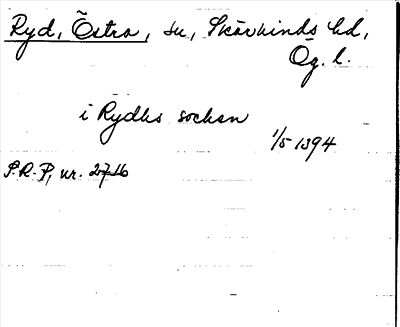 Ryd, Östra, sn, Skärkinds hd,
Ög. l.
i Rydhs sochen
1/5 1394
S.R-P, nr. 2716